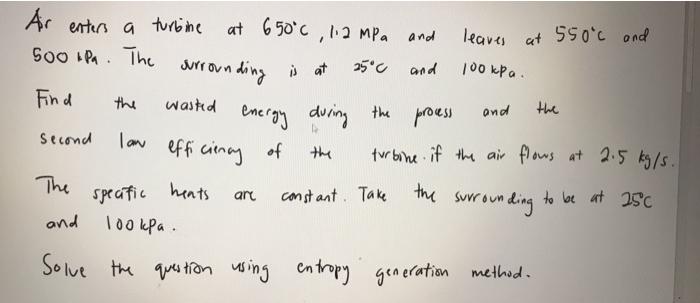 Air enters a turbine at 650°C, 1.2 MPa and leaves at 550°C and
500 kPa. The surrounding is at 25°C and 100 kPa.
Find the wasted energy during the process and the
second law efficiency of the turbine. if the air flows at 2.5 kg/s.
The specific heats are constant. Take the surrounding to be at 25C
and 100 kPa.
Solve the question using entropy generation method.